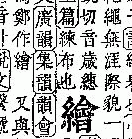 繩無涯際貌一
切音歲緦
篇練布也
繪
廣韻集韻韻會
鄭作繪又與